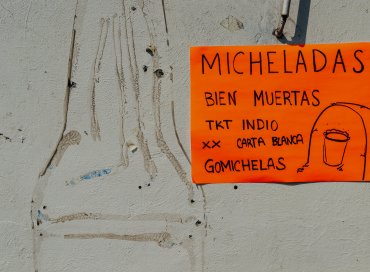 MICHELADAS
BIEN MUERTAS
TKT INDIO
XX CARTA BLANCA
GOMICHELAS